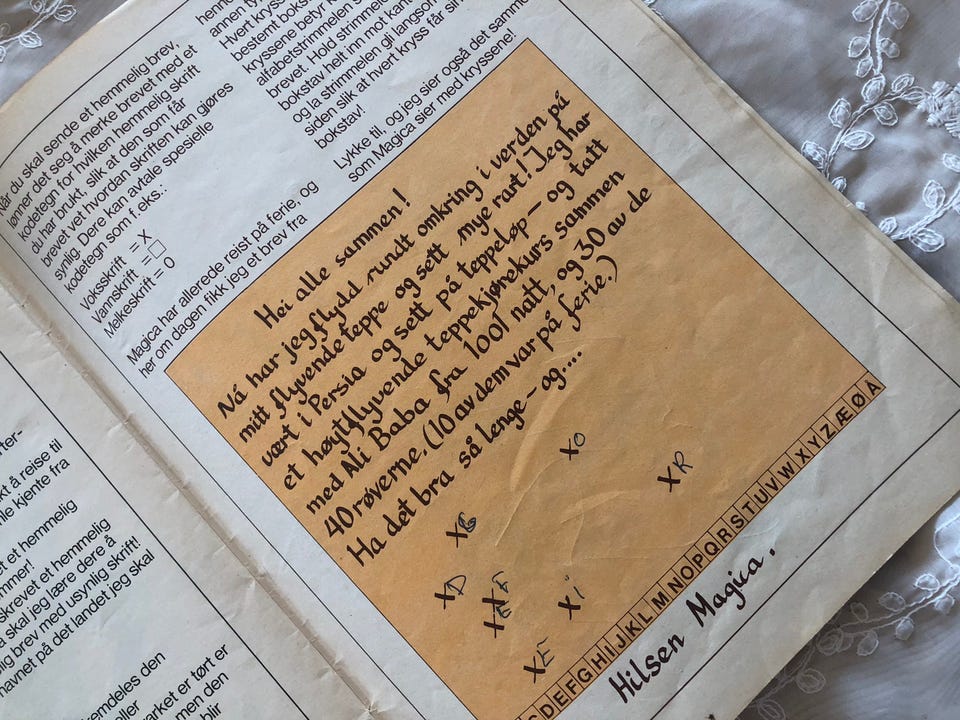 Når du skal sende et hemmelig brev,
lønner det seg å merke brevet med et
kodetegn for hvilken hemmelig skrift
du har brukt, slik at den som får
brevet vet hvordan skriften kan gjøres
synlig. Dere kan avtale spesielle
kodetegn som f.eks.:
Voksskrift = X
Vannskrift = □
Melkeskrift = O
Magica har allerede reist på ferie, og
her om dagen fikk jeg et brev fra
henne
annen ty
Hvert kryss
bestemt bokst
kryssene betyr k
alfabetstrimmelen s
brevet. Hold strimmelen
bokstav helt inn mot kan
og la strimmelen gli langsom
siden slik at hvert kryss får sin
bokstav!
Lykke til, og jeg sier også det samme
som Magica sier med kryssene!
Hei alle sammen!
Nå har jeg flydd rundt omkring i verden på
mitt flyvende teppe og sett mye rart! Jeg har
vært i Persia og sett på teppeløp – og tatt
et høytflyvende teppekjørekurs sammen
med Ali Baba fra 1001 natt, og 30 av de
40 røverne. (10 av dem var på ferie.)
Ha det bra så lenge – og....
XO
XR
XG
XD
XE
XE
Xi
XE
CDEFGHIJKLMNOPQRSTUVWXYZÆØÅ
Hilsen Magica.
kt å reise til
le kjente fra
t et hemmelig
mmer!
skrevet et hemmelig
a skal jeg lære dere å
lig brev med usynlig skrift!
navnet på det landet jeg skal
emdeles den
oller
varket er tørt er
men den
blir